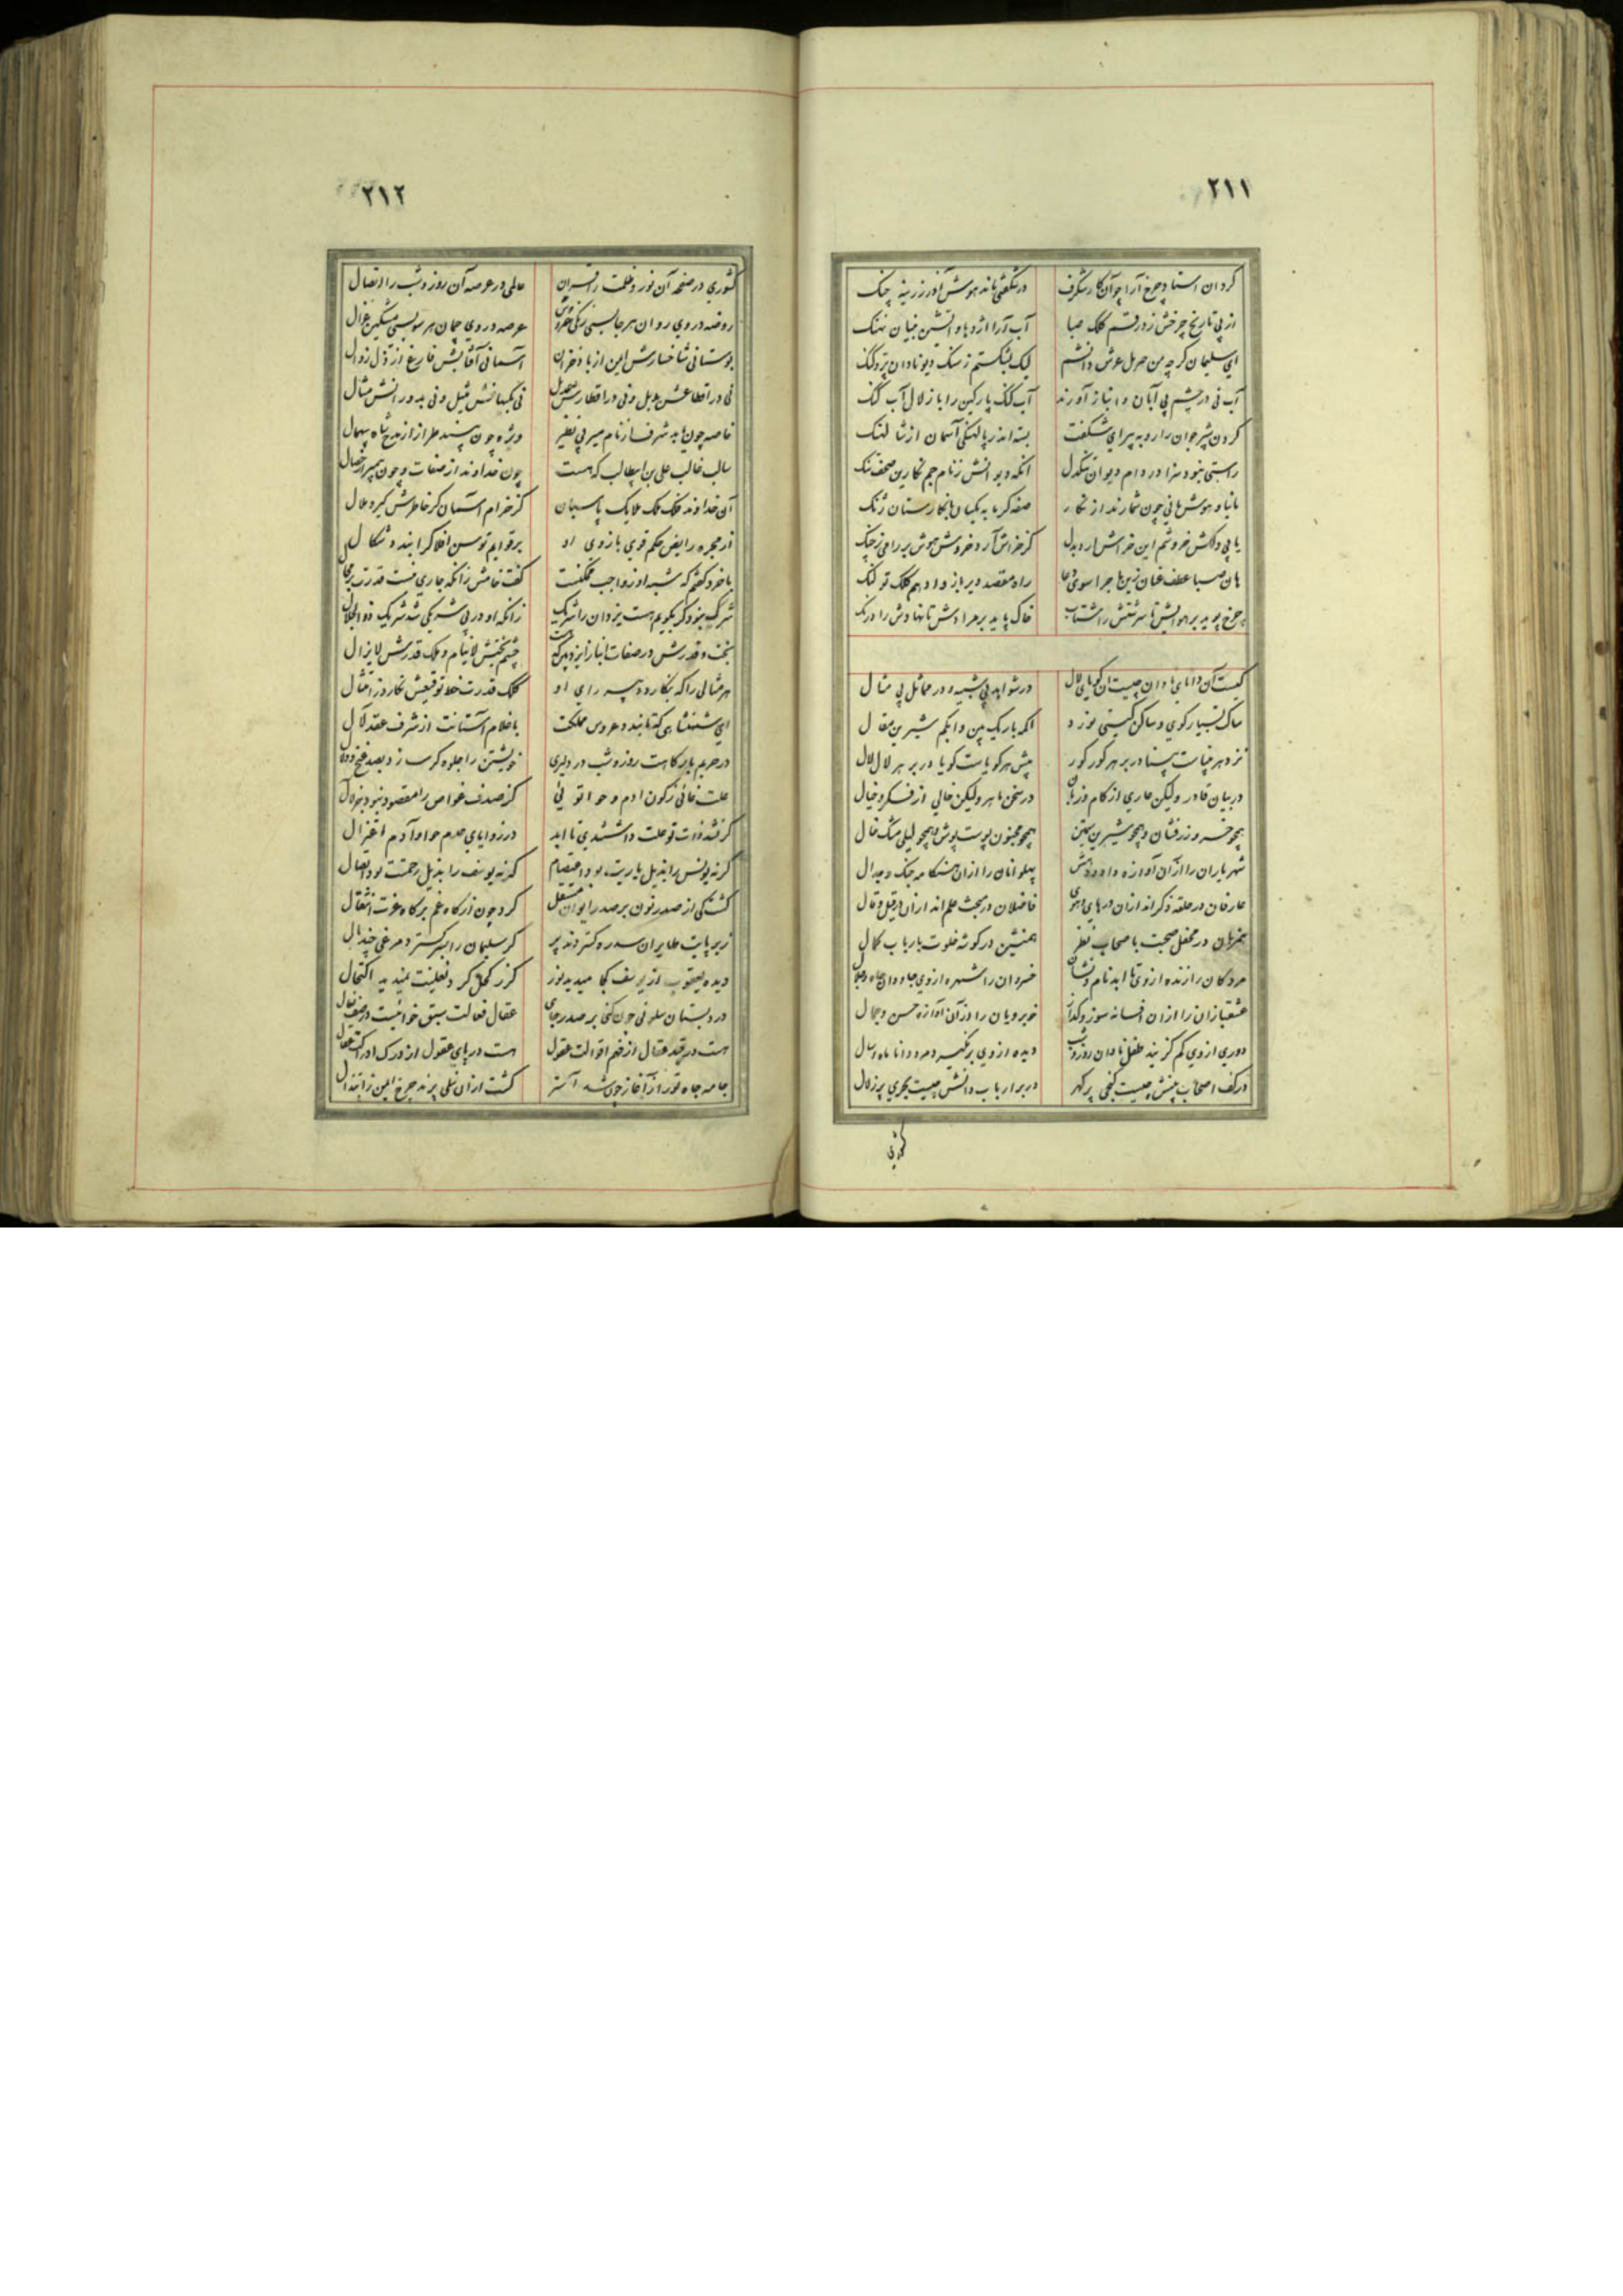 ۲۱۱
کرد ان استاد چرخ آرا چو آن کار شگرف
در شگفتی ماند هوش آذر زرینه چنک
از پی تاریخ چرخش زد رقم کلک صبا
آب آرا اژدها و آتشین بنیان نهنک
ای سلیمان کر چه من
لیک بشکستم ز سنک دیو نادان
آب نی در چشم بی آبان و انباز آورند
آب کنک پارکین را با زلال آب کنک
کردن شیر جوان را روبه پیر ای شکفت
بسته اندر پالهنکی آسمان از
راستی نبود سزا در دام دیوان تنکدل
انکه دیو انش ز نام جم نکارین صحف ننک
مانیا و هوش مانی چون شمارند از نکار
صفه کرمابه یکسان با نکارستان ژنک
یا پی دلکش خروشم این خراش ارد بدل
کز خراش آرد خروش هوش بر رامی ز چنک
هان صبا عطف عنان زین ماجرا سوی دعا
راه مقصد دیر باز و ادهم کلک تو لنک
چرخ پوید بر هوایش تا سرشتش را شتاب
خاک پاید بر مرادش تا نهادش را درنک
کیست آن دانای نادان چیست ان کویای لال
در شواهد بی شبیه و در مماثل بی مثال
ساکت بسیار کوی و ساکن کیتی نورد
اکمه باریک بین و ابکم شیرین مقال
نزد هر بیناست بینا در بر هر کور کور
پیش هر کویاست کویا در بر هر لال لال
در بیان قادر ولیکن عاری از کام و زبان
در سخن ماهر ولیکن خالی از فکر و خیال
همچو خسرو زرفشان و همچو شیرین سیمتن
همچو مجنون پوست پوش و همچو لیلی مشک خال
شهریاران را از آن آوازه داد و دهش
پهلوانان را از ان هنکامه جنک و جدال
عارفان در حلقه ذکراند ازان در های و هوی
فاضلان در بحث علم اند ازان در قیل و قال
همزبان در محفل صحبت با صحاب نظر
همنشین در کوشه خلوت با رباب کمال
مردکان را زنده از وی تا ابد نام و نشان
خسروان را شهره از وی جاودان جاه و جلال
عشقبازان را ازان افسانه سوز و کداز
خوبرویان را از آن آوازه حسن و جمال
دوری از وی کم کزیند طفل نادان روز و شب
دیده از وی بر نکیرد مرد دانا ماه و سال
در کف اصحاب بینش چیست کنجی پر کهر
در بر ارباب دانش چیست بحری پر زلال
کشوری
۲۱۲
کشوری در صفحه آن نور و ظلمت را قران
عالمی در عرصه آن روز و شب را اتصال
روضه در وی روان هر جانبی زنکی خروش
عرصه در وی چمان هر سو بسی مشکین غزال
بوستانی شاخسارش ایمن از باد خزان
آسمانی آفتابش فارغ از ذل زوال
نی در اقطاعش بدیل و نی در اقطارش عدیل
نی بکیهانش مثیل و نی بدورانش مثال
خاصه چون یابد شرف از نام میر بی نظیر
ویژه چون بیند طراز از مدح شاه بیهمال
سالب غالب علی بن ابیطالب که هست
چون خداوند از صفات و چون پیمبر از خصال
آن خداوند فلک ملک ملایک پاسبان
کز خرام آسمان کر خاطرش کیرد ملال
از مجره رایض حکم قوی بازوی او
بر قوایم توسن افلاکرا بندد شکال
با خرد کفتم که شبه او ز واجب ممکنست
کفت خامش زانکه جاری نیست قدرت بر محال
شرک نبود کر بکویم هست یزدان را شریک
زانکه او در بی شریکی شد شریک ذوالجلال
بخت و قدرش در صفات انباز ایزد
چشم بختش لاینام و ملک قدرش لایزال
هر مثالی را که بنکارد دبیر رای او
کلک قدرت خط توقیعش نکارد ز امتثال
ای شهنشاهی که تا بندد عروس مملکت
با غلام آستانت از شرف عقد
در حریم بارکاهت روز و شب در دلبری
خویشتن را جلوه کر سازد بصد غنج و دلال
علت غائی ز کون ادم و حوا توئی
کز صدف غواص را مقصود نبود جز لال
کر نشد ذات تو علت داشتندی تا ابد
در زوایای عدم حوا و آدم اعتزال
کر نه یونس را بذیل یاریت بود اعتصام
کر نه یوسف را بذیل رحمت بود اتصال
کشتی از صدر نون بر صدر ایوان منتقل
کرد چون از کاه غم بر کاه عزت انتقال
زیر پایت طایران سدره کستردند پر
کر سلیمان را بسر کسترد مرغی چند بال
دیده یعقوب از یوسف کجا میدید نور
کز کحل کرد نعلینت ندید اکتحال
در دبستان سلونی چون کنی بر صدر جای
عقل فعالت سبق خوانیست در صف نعال
هست در قید عقال از فهم اقوالت عقول
هست در پای عقول از درک ادراکت عقال
جامه جاه تو را ز آغاز چون شد آستر
کشت ازان نیلی پرند چرخ ایمن ز ابتذال